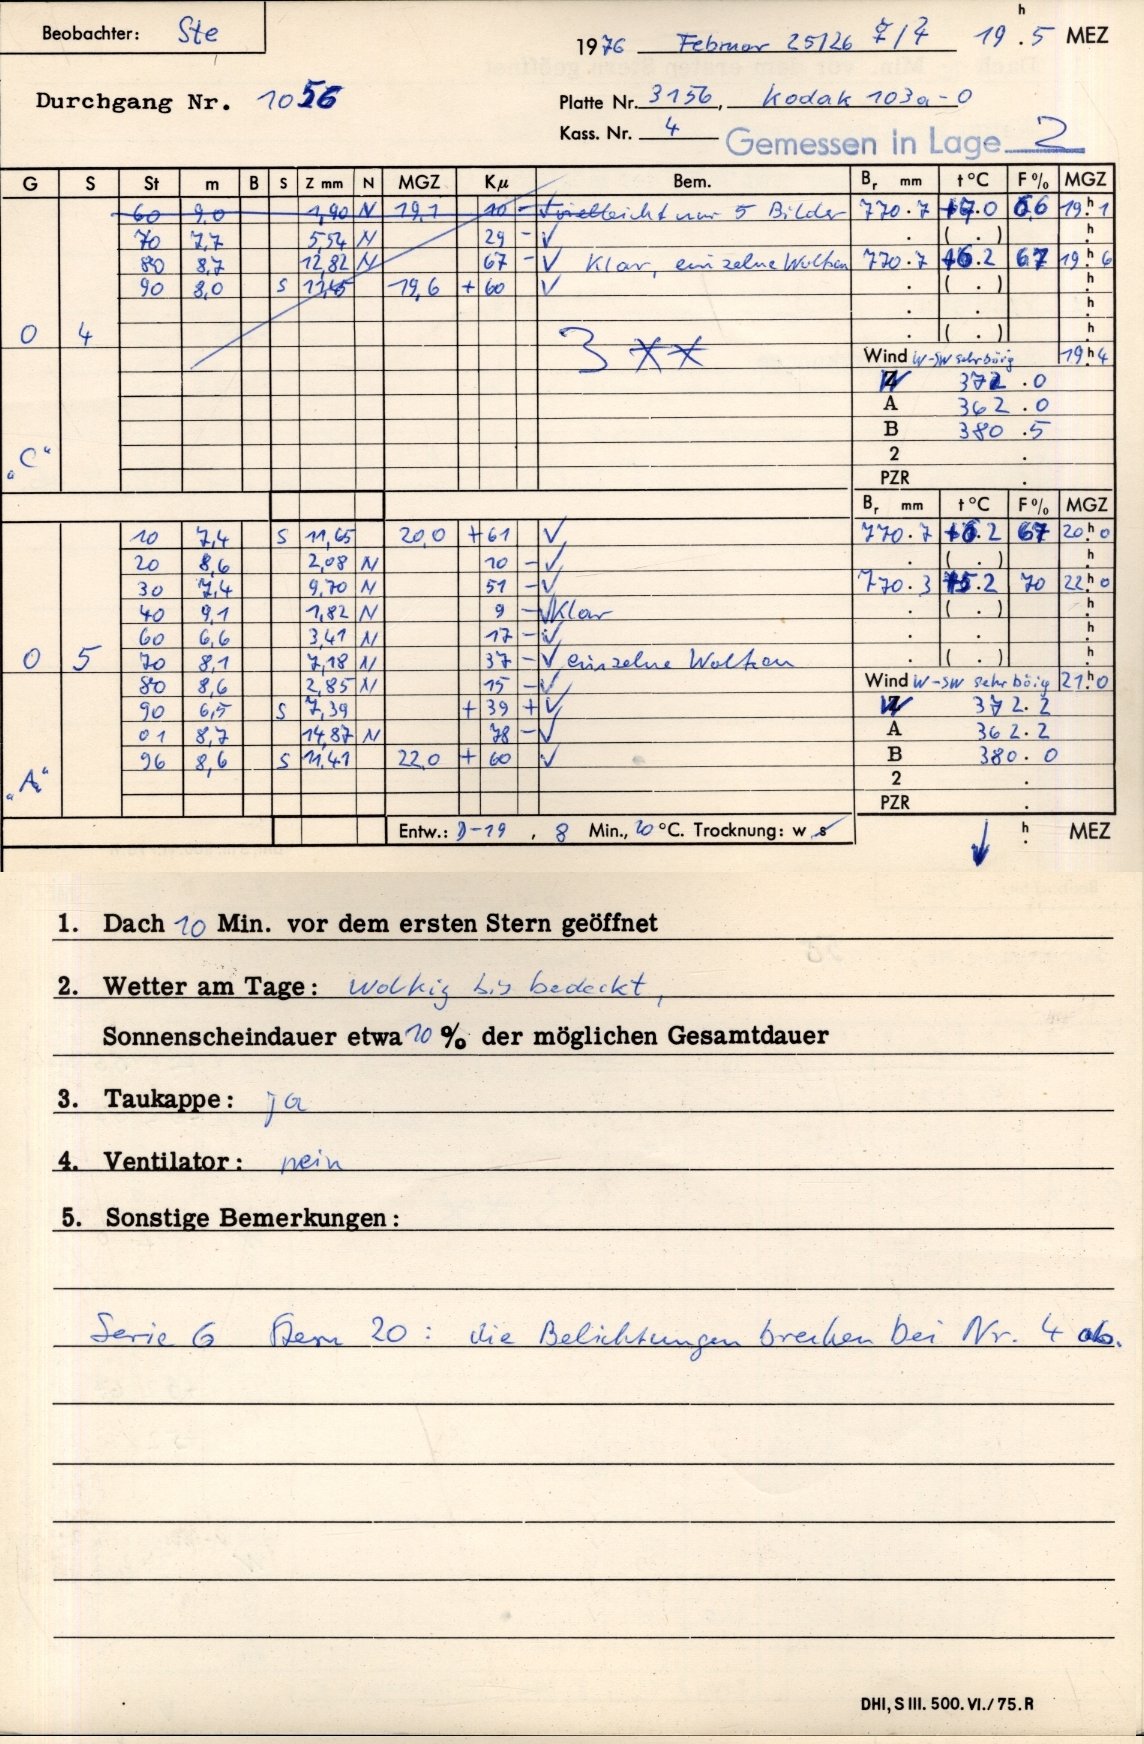 Beobachter: Ste
h
1976 Februar 25/26 7/7 19 . 5 MEZ
Durchgang Nr. 1056
Platte Nr. 3156, Kodak 103a-0
Kass. Nr. 4 Gemessen in Lage 2
G S St m B S Z mm N MGZ Kμ Bem. Br mm t °C F% MGZ
60 9,0 1,90 N 19,1 10 - vielleicht nur 5 Bilder 770.7 +7.0 66 19.h 1
70 7,7 5,54 N 29 - √ . ( . ) h
80 8,7 12,82 N 67 - √ Klar, einzelne Wolken 770.7 +6.2 67 19.h 6
90 8,0 S 19,6 + 60 √ . ( . ) h
. . h
0 4 . ( . ) h
3 ** Wind W-SW sehr böig 19.h 4
372 .0
A 362 .0
B 380 .5
"C" 2 .
PZR .
Br mm t °C F% MGZ
10 7,4 S 11,65 20,0 + 61 √ 770.7 +6.2 67 20.h 0
20 8,6 2,08 N 10 - √ . ( . ) h
30 7,4 9,70 N 51 - √ 770.3 +5.2 70 22.h 0
40 9,1 1,82 N 9 - √ Klar . ( . ) h
60 6,6 3,41 N 17 - √ . . h
0 5 70 8,1 7,18 N 37 - √ einzelne Wolken . ( . ) h
80 8,6 2,85 N 15 - √ Wind W-SW sehr böig 21.h 0
90 6,5 S 7,39 + 39 + √ 372.2
01 8,7 14,87 N 78 - √ A 362.2
96 8,6 S 11,41 22,0 + 60 √ B 380.0
"A" 2 .
PZR .
Entw.: D-19 , 8 Min., 20 °C. Trocknung: w s h . MEZ
1. Dach 10 Min. vor dem ersten Stern geöffnet
2. Wetter am Tage: wolkig bis bedeckt,
Sonnenscheindauer etwa 10 % der möglichen Gesamtdauer
3. Taukappe: ja
4. Ventilator: nein
5. Sonstige Bemerkungen:
Serie 6 Stern 20: die Belichtungen brechen bei Nr. 4 ab.
DHI, S III. 500. VI./75. R